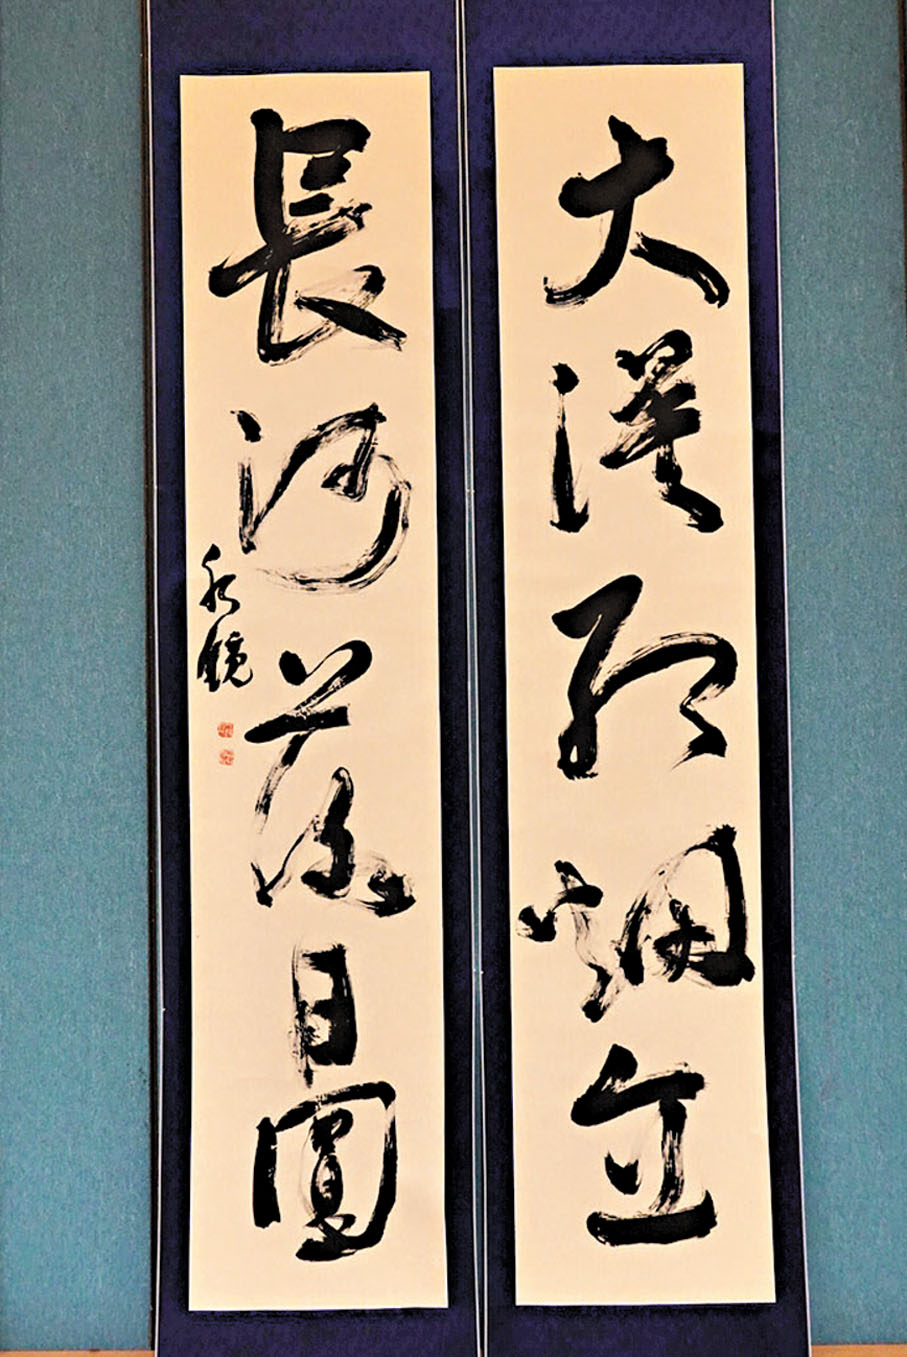 大漠孤烟直
長河落日圓
永鏡